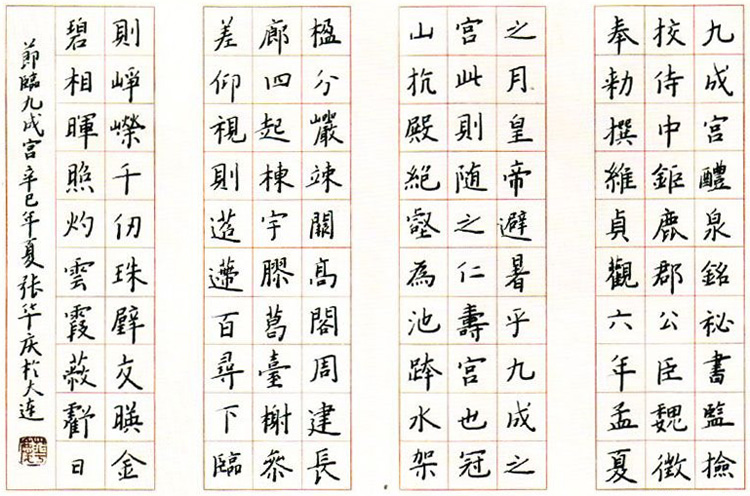 九成宫醴泉銘祕書監撿
挍侍中鉅鹿郡公臣魏徵
奉勑撰維貞觀六年孟夏
之月皇帝避暑乎九成之
宫此則随之仁壽宫也冠
山抗殿絕壑為池跨水架
楹分巖竦闕髙閣周建長
廊四起棟宇膠葛臺榭叅
差仰視則迢遰百尋下臨
則崢嶸千仞珠璧交暎金
碧相暉照灼雲霞蔽虧日
節臨九成宫辛巳年夏张华庆於大连